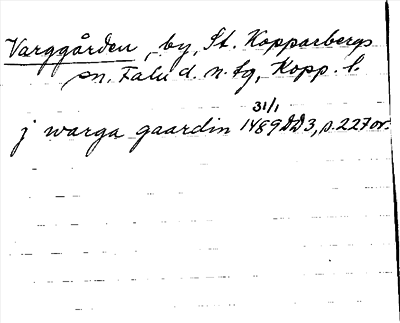 Varggården, by, St. Kopparbergs
sn, Falu d. n. tg, Kopp. l
31/1
j warga gaardin 1489 DD3, s. 227 or.